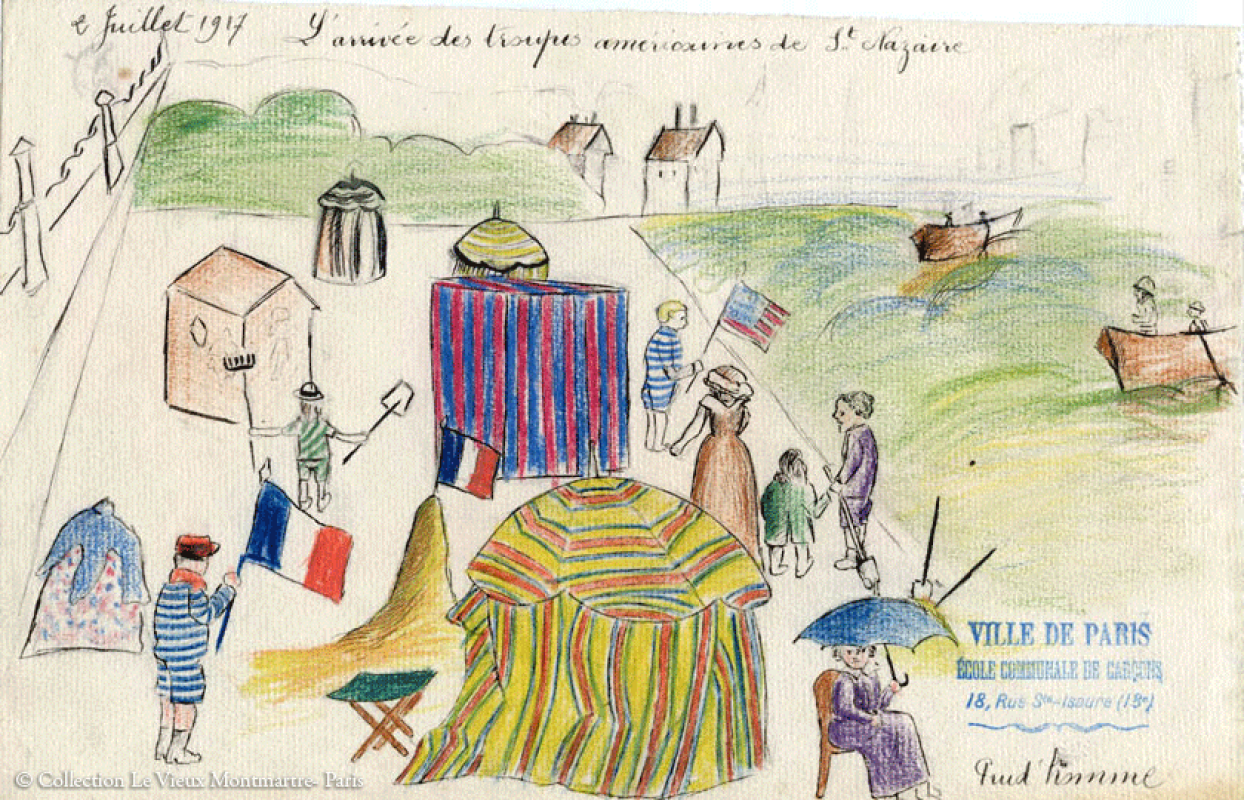 2 Juillet 1917 L'arrivée des troupes américaines de St Nazaire
VILLE DE PARIS
ÉCOLE COMMUNALE DE GARÇONS
18, Rue Ste-Isaure (18e)
Prud'homme
© Collection Le Vieux Montmartre- Paris